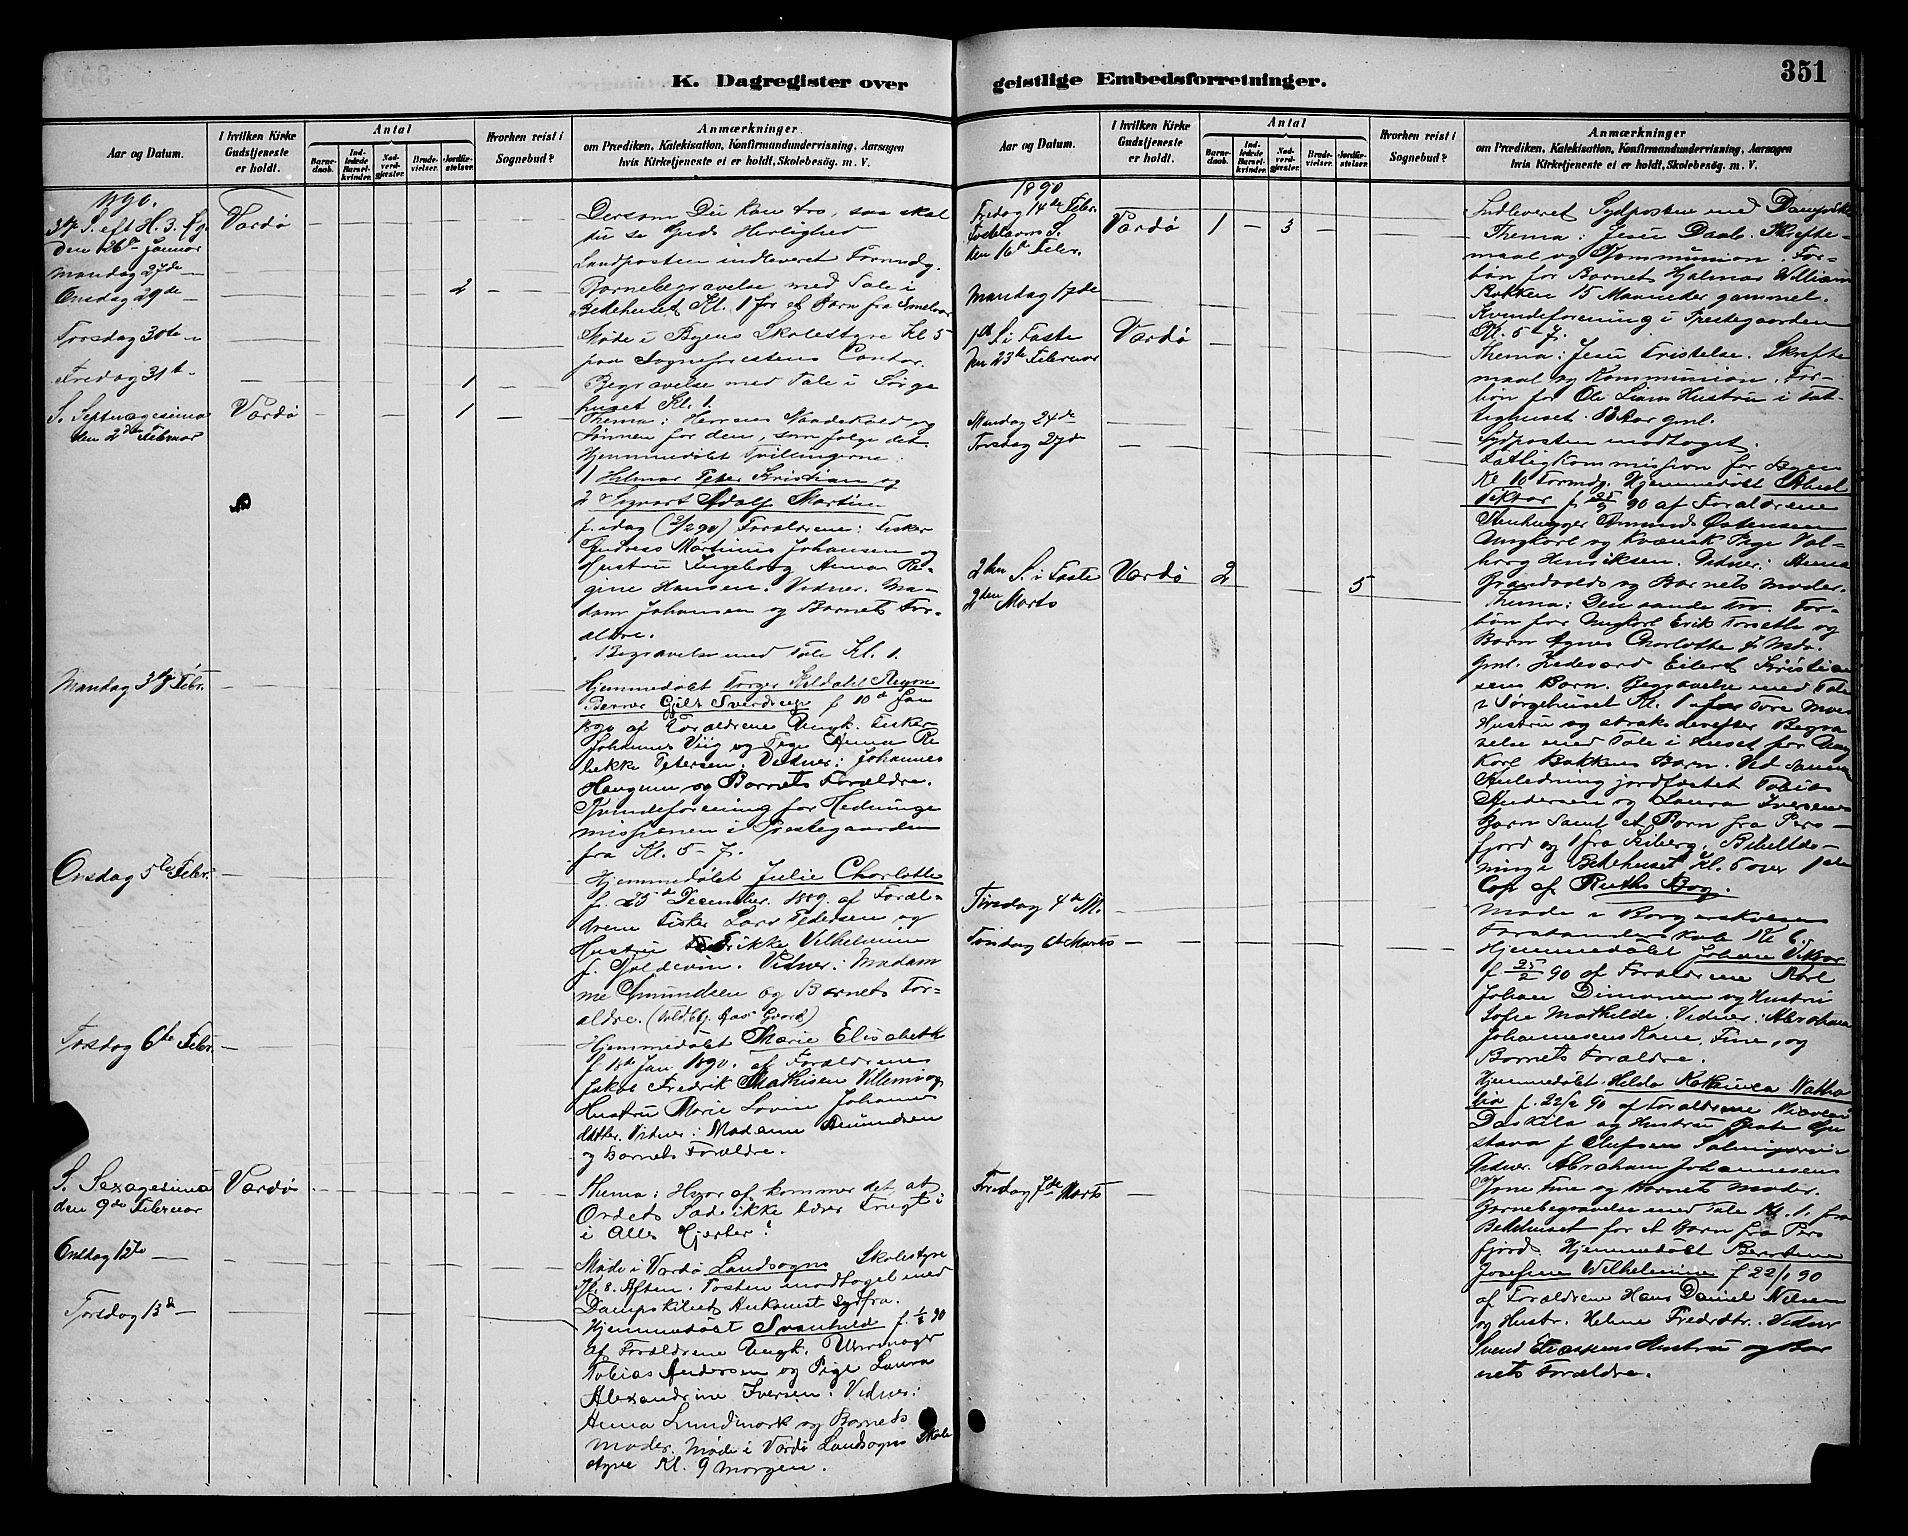 K. Dagregister over
Aar og Datum.
I hvilken Kirke
Gudstjeneste
er holdt.
Antal
Barne-
daab.
Ind-
ledede
Barsel-
kvinder.
Nad-
verd-
gjæster.
Brude-
vielser.
Jordfæ-
stelser.
Hvorhen reist i
Sognebud?
Anmærkninger
om Prædiken, Katekisation, Konfirmandundervisning, Aarsagen
hvis Kirketjeneste ei er holdt, Skolebesög. m. V.
1890.
3die S. eft H. 3. Kg. Vardø
den 26de Januar
Dersom Du kan tro, saa skal
du se Guds Herlighed
Mandag 27de
Landposten indleveret Formdg.
Onsdag 29de 2
Barnebegravelse med Tale i
Bedehuset Kl. 1 for et Barn fra
Torsdag 30te
Møde i Byens Skolestyre Kl 5
paa Sogneprestens Contor.
Fredag 31te 1
Begravelse med Tale i Sørge
huset Kl. 1.
S. Septuagesima Vardø 1
den 2den Februar
Thema: Herrens Naadekald og
Lønnen for dem, som følge det
Hjemmedøbt Tvillingerne:
1 Halmar Peter Kristian og
2 Sigvart Adolf Martin
f. idag (2/2 90) Forældrene: Fisker
Andreas Martinus Johansen og
Hustru Ingeborg Anna Re-
gine Hansen. Vidner: Ma-
dam Johansen og Barnets For-
ældre.
1 Begravelse med Tale Kl. 1.
Mandag 3die Febr.
Hjemmedøbt
Sverdrup f 10de Jan
1890 af Forældrene Ungk. Fisker
Johannes Viig og Pige Anna Re
bekke Petersen. Vidner: Johannes
Haugen og Barnets Forældre.
Kvindeforening for Hedninge
missionen i Prestegaarden
fra Kl. 5-7.
Onsdag 5te Febr.
Hjemmedøbt Julie Charlotte
f. 25de December 1889. af Foræl-
drene Fisker Lars Pedersen og
Hustru Fredrikke Vilhelmine
f. Goldevin. Vidner: Madam
me Amundsen og Barnets For-
ældre.
Torsdag 6te Febr.
Hjemmedøbt Marie Elisabeth
f 1ste Jan 1890. af Forældrene
Jakob Fredrik Mathisen Villemi og
Hustru Marie Lovise Johannes
datter. Vidner: Madame Amundsen
og Barnets Forældre.
S. Sexagesima Vardø
den 9de Februar
Thema: Hvor af kommer det at
Ordets Sæd ikke bærer Frugt i
i Alles Hjerter?
Onsdag 12te
Møde i Vardø Landsogns Skolestyre
Kl. 8. Aften. Posten modtaget med
Dampskibets Ankomst sydfra.
Torsdag 13de
Hjemmedøbt Svanhild f. 1/1 90
af Forældrene Ungk. Uhrmager
Tobias Andersen og Pige Laura
Alexandrine Iversen. Vidner:
Anna Lundmark og Barnets
Moder. Møde i Vardø Landsogns Skole
styre Kl. 9 Morgen.
geistlige Embedsforretninger.
351
Aar og Datum.
I hvilken Kirke
Gudstjeneste
er holdt.
Antal
Barne-
daab.
Ind-
ledede
Barsel-
kvinder.
Nad-
verd-
gjæster.
Brude-
vielser.
Jordfæ-
stelser.
Hvorhen reist i
Sognebud?
Anmærkninger
om Prædiken, Katekisation, Konfirmandundervisning, Aarsagen
hvis Kirketjeneste ei er holdt, Skolebesög. m. V.
1890
Fredag 14de Febr.
Indleveret Sydposten med
Fastelavns S. Vardø 1 - 3
den 16de Febr.
Thema: Jesu Daab. Skrifte-
maal og Kommunion. For-
bøn for Barnet Hjalmar William
Bakken 15 Maaneder gammel.
Mandag 17de
Kvindeforening i Prestegaarden
Kl. 5-7.
1ste S i Faste Vardø
den 23de Februar
Thema: Jesu Fristelse. Skrifte
maal og Kommunion. For-
bøn for Ole Hustru i Fat-
tighuset. Aar gml.
Mandag 24de
Sydposten modtaget.
Torsdag 27de
Fattigkommission for Byen
Kl 10 Formdg. Hjemmedøbt
Viktor f 90 af Forældrene
Stenhugger Amund Østensen
Ungkarl og kvænsk Pige Val-
borg Henriksen. Vidner: Anna
og Barnets Moder.
2den S. i Faste Vardø 2 5
2den Marts
Thema: Den sande Tro. For-
bøn for Ungkarl Erik og
Barn Agnes Charlotte
gml. Eilert Kristian
sens Barn. Begravelse med Tale
i Sørgehuset Kl. 1 for
Hustru og straks derefter Begra
velse med Tale i Huset for Ung
karl Bakkens Barn. Ved samme
Anledning jordfæstet Tobias
Andersen og Laura Iversens
Barn samt et Barn fra Pers-
fjord og 1 fra Kiberg. Bibellæs-
ning i Bedehuset Kl. 6 over 1ste
Cap af Ruths Bog.
Tirsdag 4de M.
Møde i Borgerskolens
Forstanderskab Kl 6.
Torsdag 6te Marts
Hjemmedøbt Johan Viktor
f 25/2 90 af Forældrene Karl
Johan og Hustru
Sofie Mathilde. Vidner: Abraham
Johannesens Kone, Fine, og
Barnets Forældre.
Hjemmedøbt Hilda Katrine Natha
lia f. 22/2 90 af Forældrene
Daskila og Hustru Beate Gu
stava f Olufsen
Vidner. Abraham Johannesens
Kone Fine og Barnets Moder.
Fredag 7de Marts
Barnebegravelse med Tale Kl. 1. fra
Bedehuset for et Barn fra Pers
fjord. Hjemmedøbt
Josefine Wilhelmine f 22/1 90
af Forældrene Hans Daniel Nilsen
og Hustr. Helene Fredrdtr. Vidner
Svend Hustru og Bar
nets Forældre.